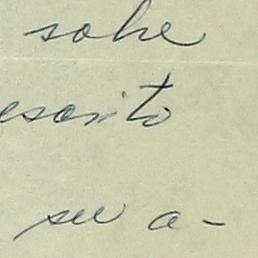 sobre
escrito
su a-